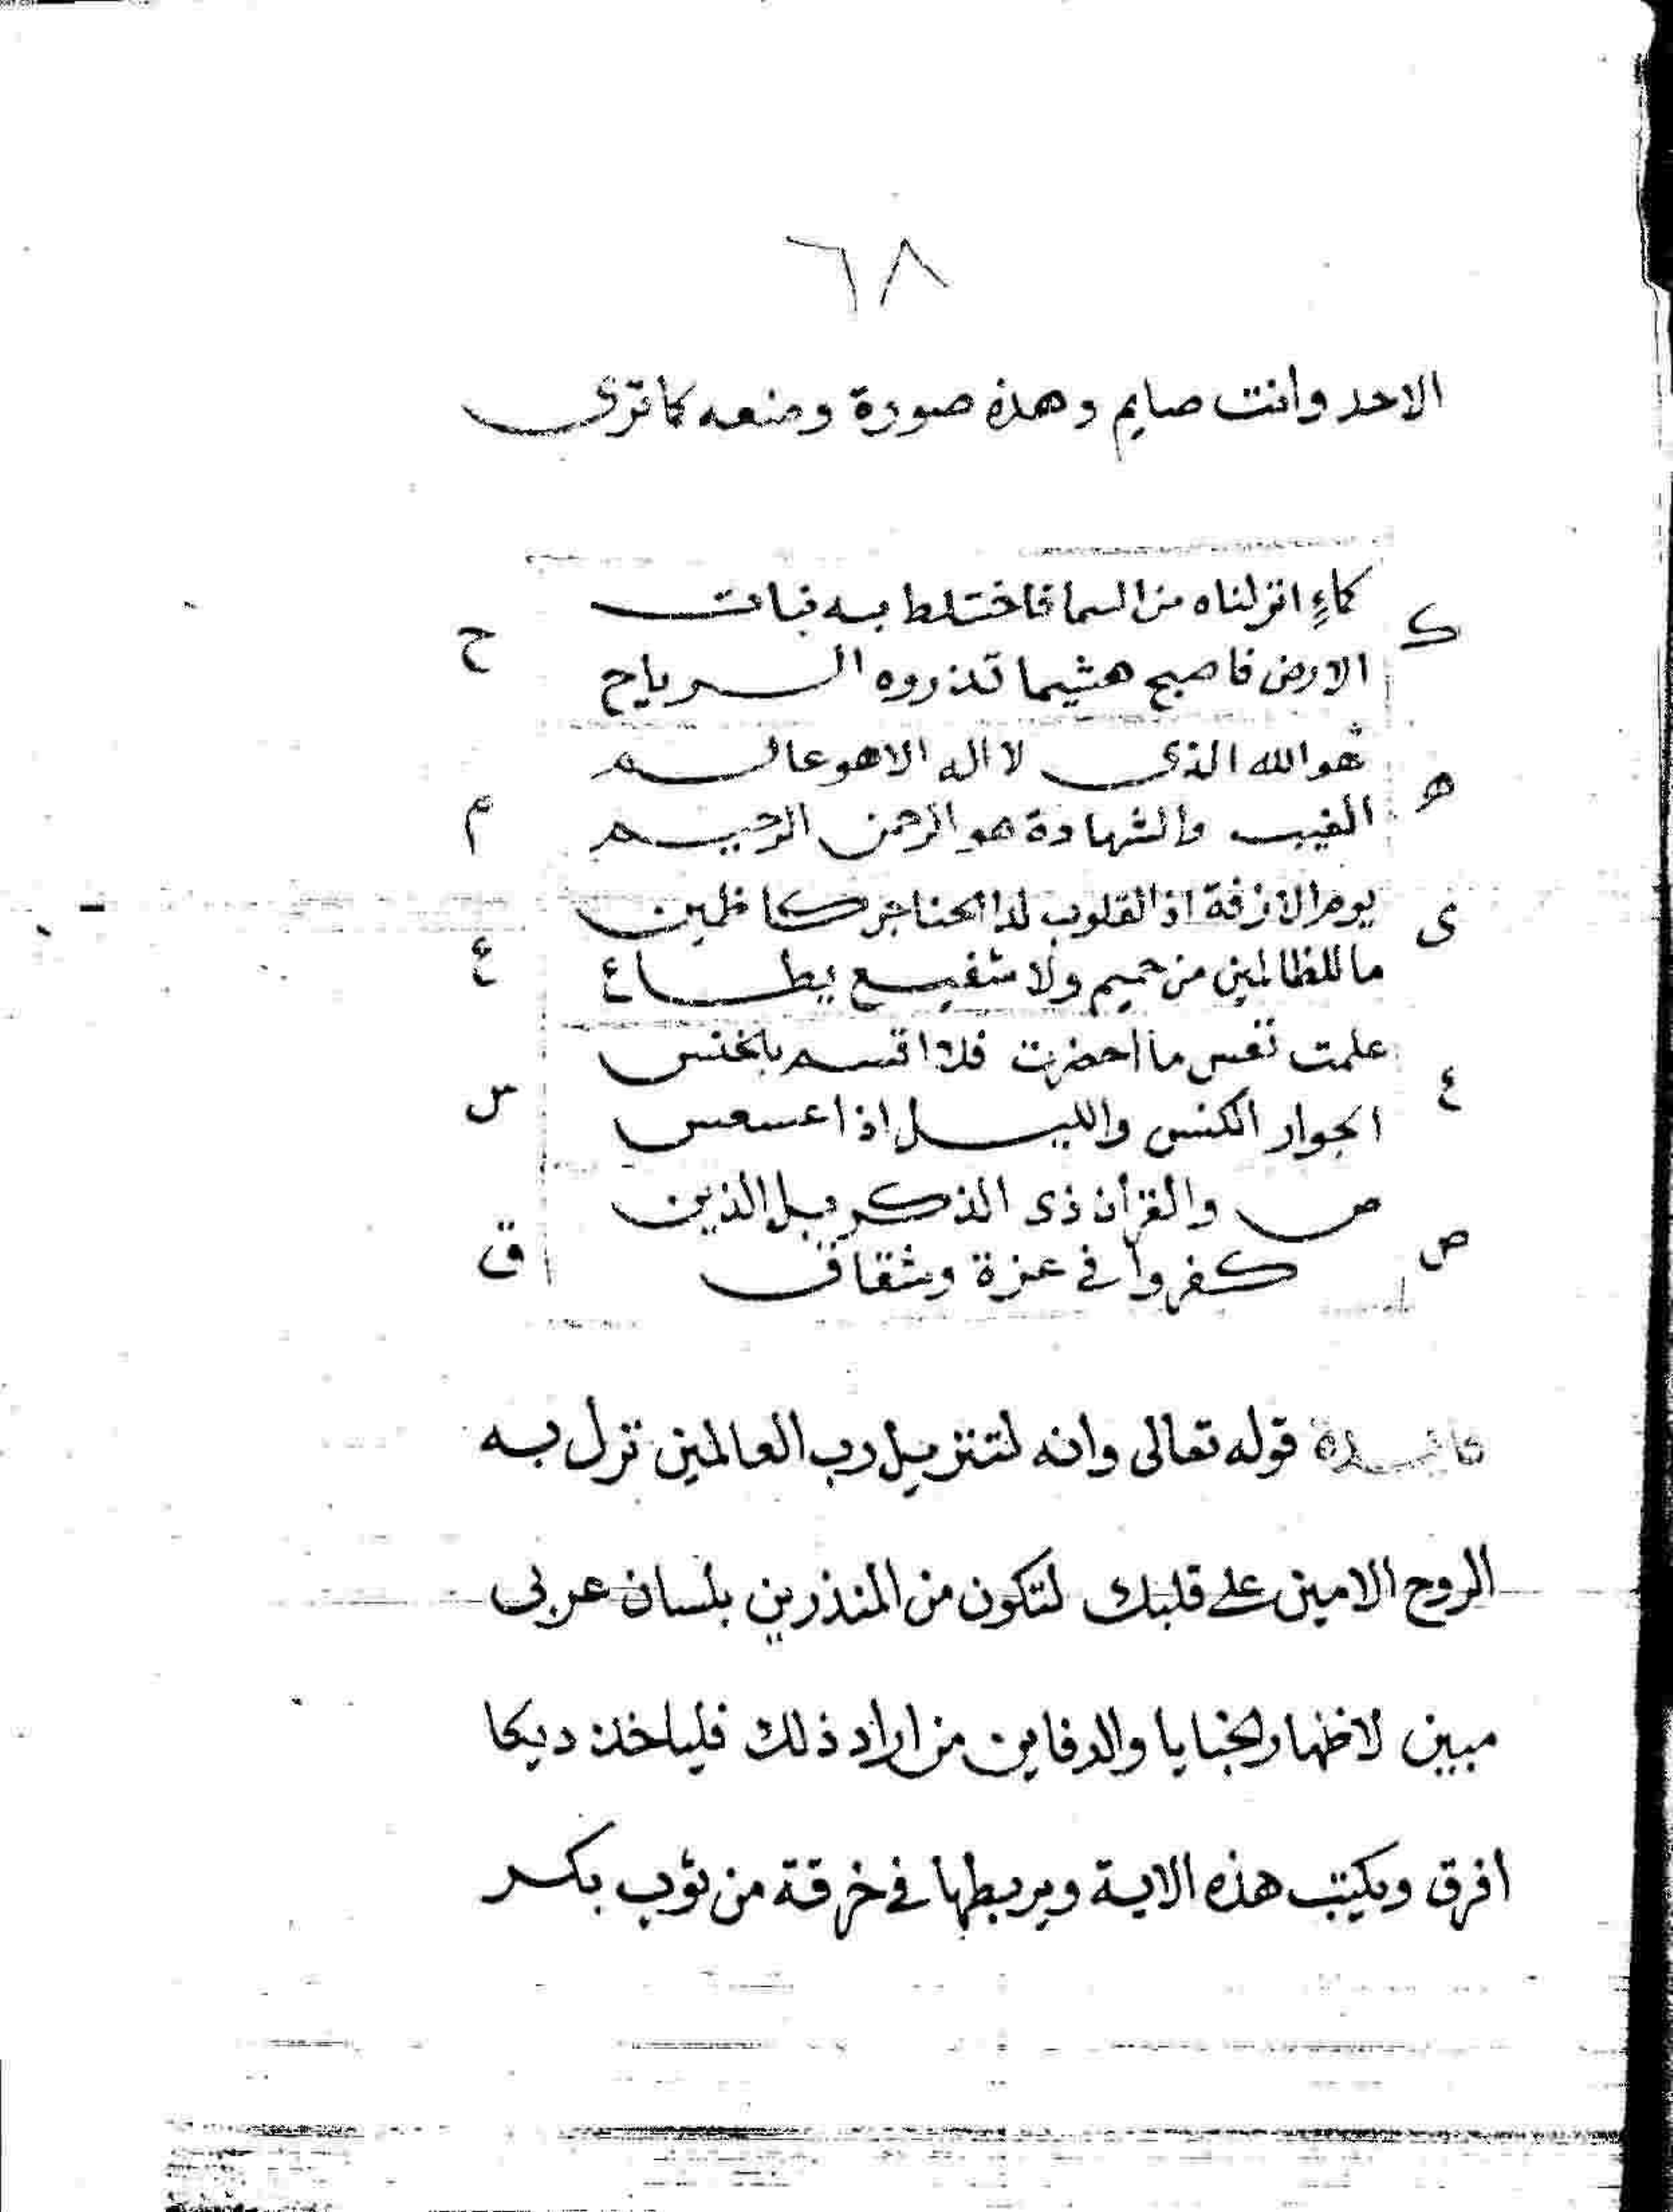 ٦٨
الاحد وانت صايم وهذه صورة وضعه كما ترى
كماءٍ انزلناه من السما فاختلط به نبات
ك
ح
الارض فاصبح هشيما تذروه الرياح
هو الله الذى لا اله الا هو عالم
ه
م
الغيب والشهادة هو الرحمن الرحيم
يوم الازفة اذ القلوب لدا الحناجر كاظمين
ى
ع
ما للظالمين من حميم ولا شفيع يطاع
علمت نفس ما احضرت فلا اقسم بالخنس
ع
س
الجوار الكنس والليل اذا عسعس
ص والقرأن ذى الذكر بل الذين
ص
ق
كفروا فى عزة وشقاق
فايدة قوله تعالى وانه لتنزيل رب العالمين نزل به
الروح الامين على قلبك لتكون من المنذرين بلسان عربى
مبين لاظهار الخبايا والدفاين من اراد ذلك فلياخذ ديكا
افرق ويكتب هذه الاية ويربطها فى خرقة من ثوب بكر